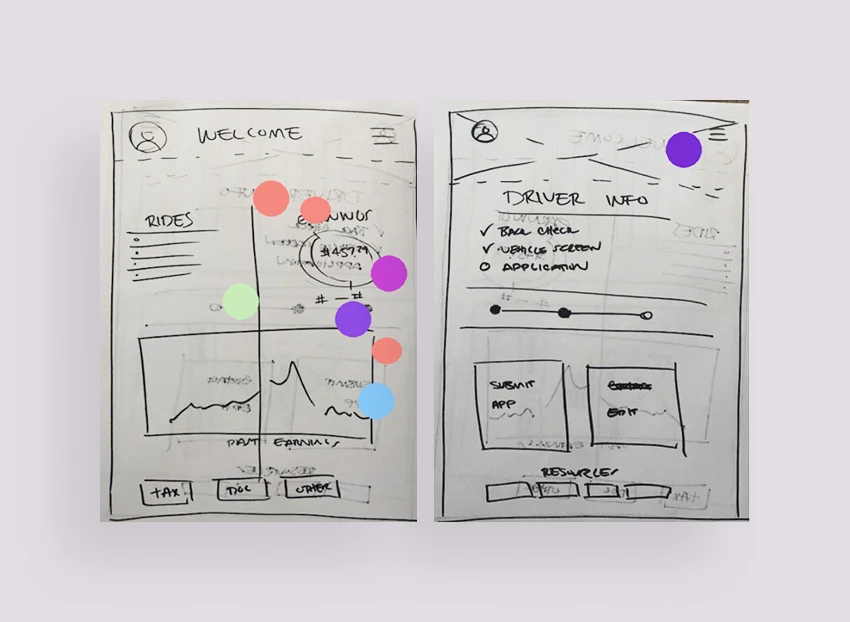 WELCOME
RIDES
EARNINGS
$457.29
# — #
PAST EARNINGS
TAX
DOC
OTHER
DRIVER INFO
✓ BACK CHECK
✓ VEHICLE SCREEN
○ APPLICATION
SUBMIT
APP
EDIT
RESOURCES